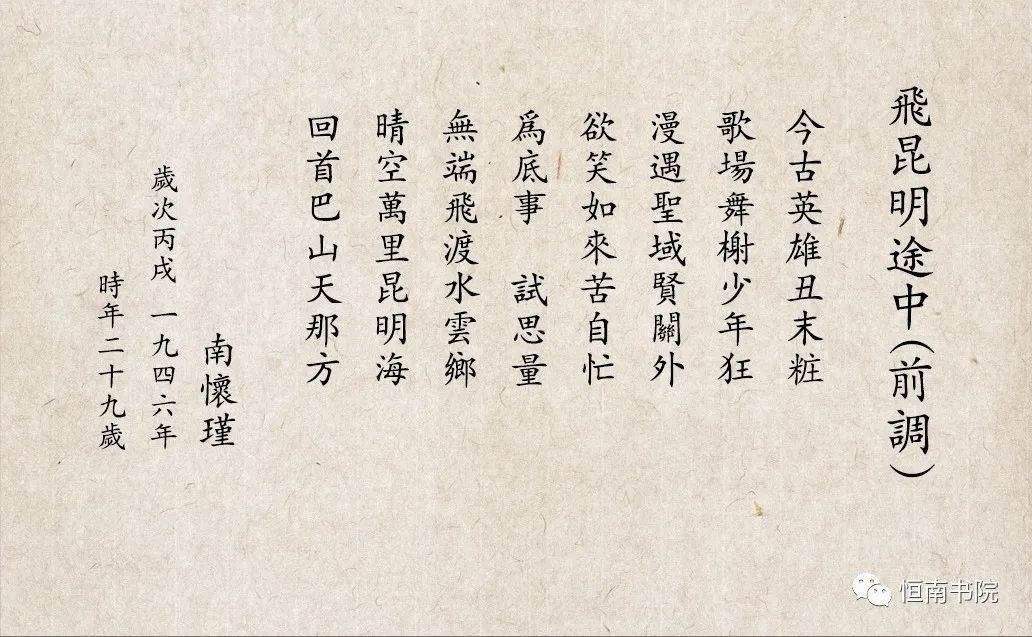 飛昆明途中(前調)
今古英雄丑末粧
歌場舞榭少年狂
漫遇聖域賢關外
欲笑如來苦自忙
爲底事 試思量
無端飛渡水雲鄉
晴空萬里昆明海
回首巴山天那方
南懷瑾
歲次丙戌 一九四六年
時年二十九歲
恒南书院